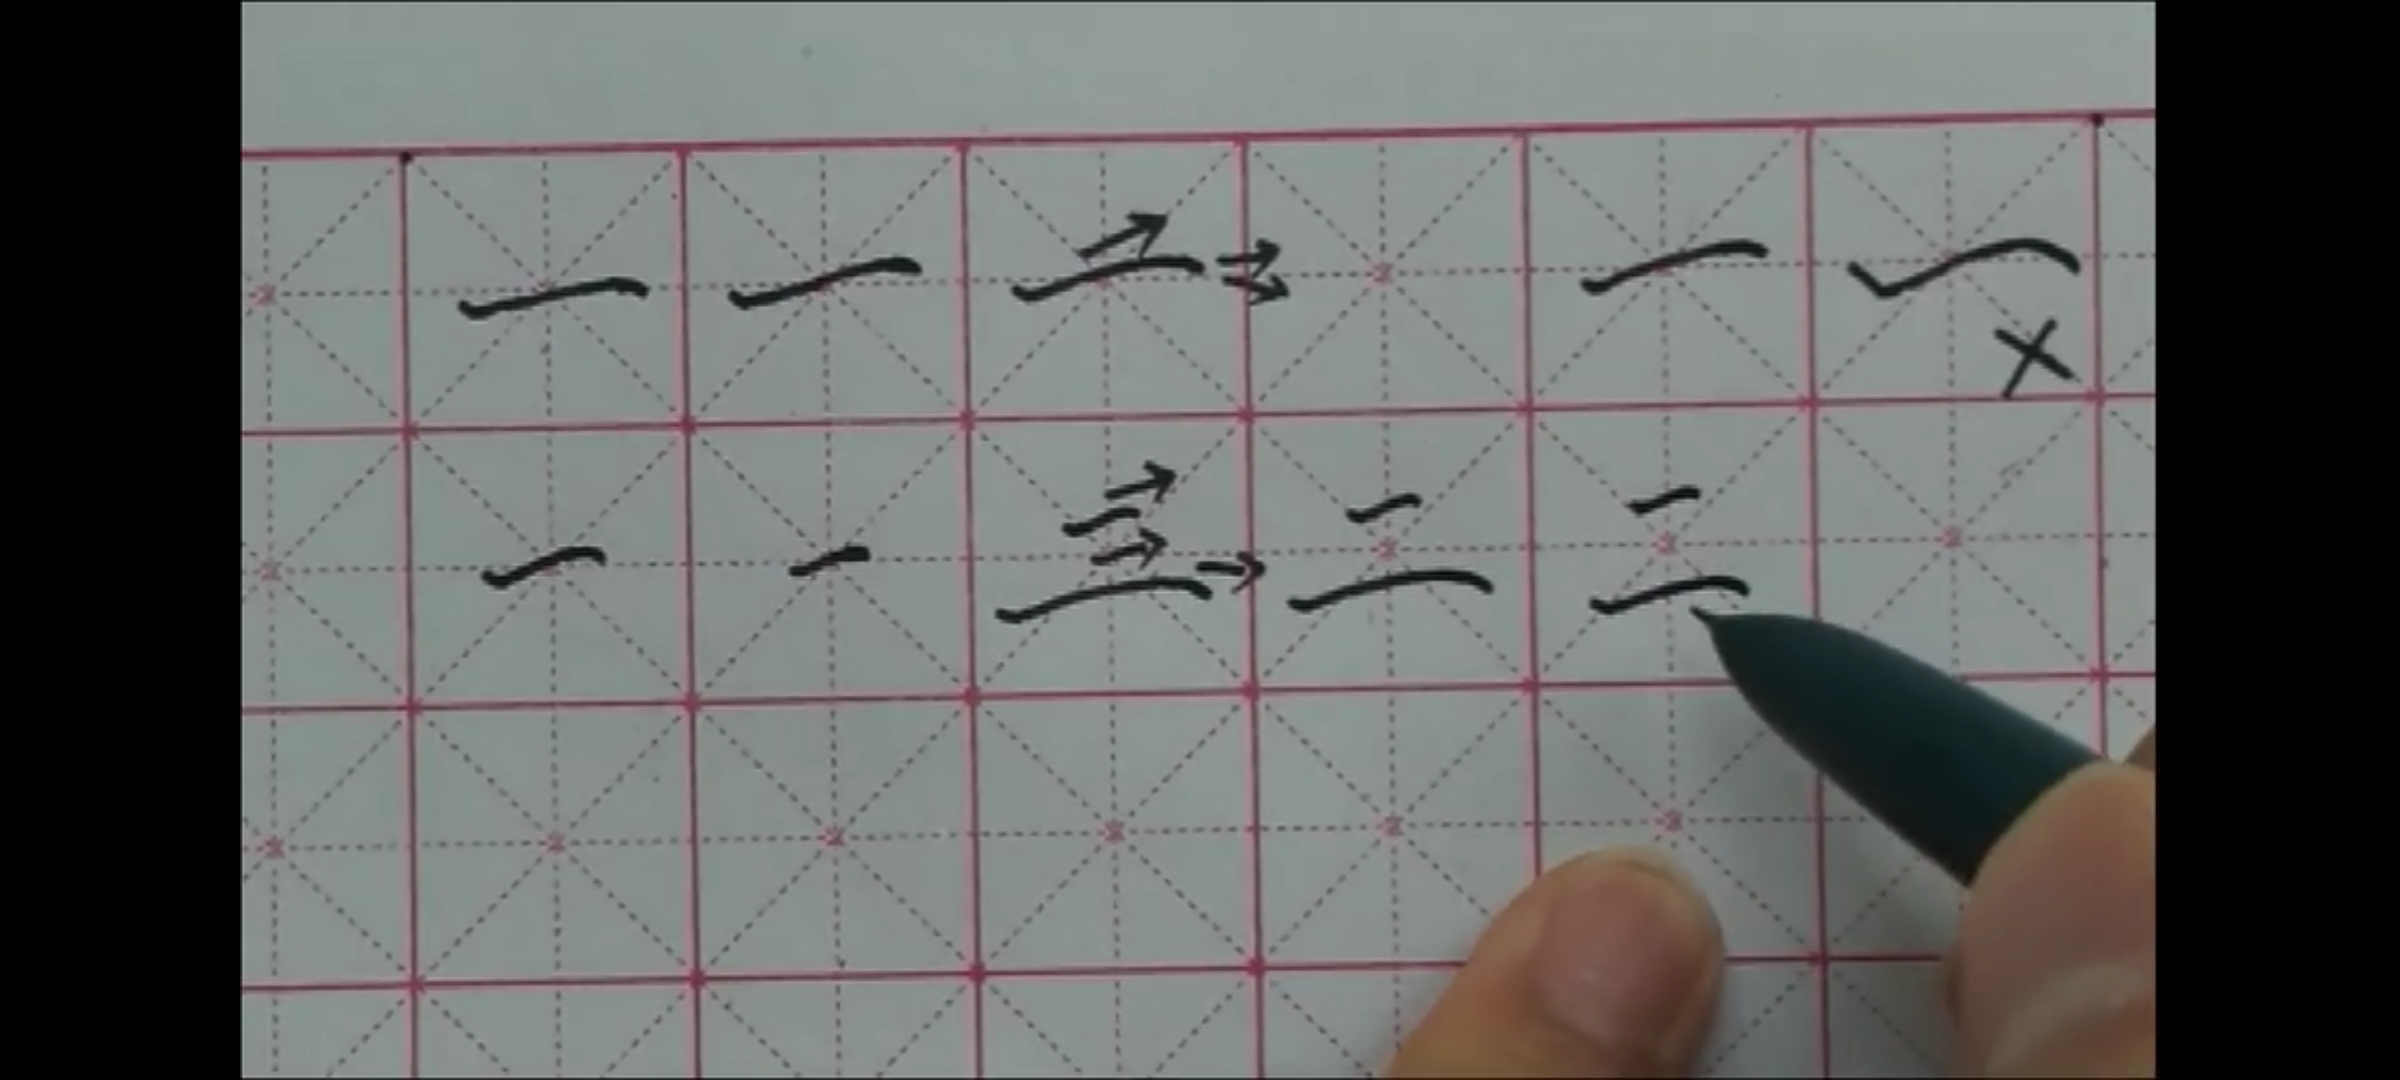 一 一 一 → → → 一 一 ×
一 一 二 → → → 二 二